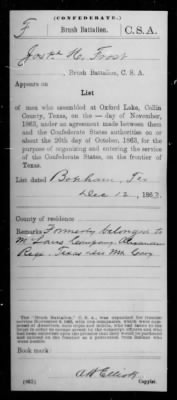 (CONFEDERATE.)
F Brush Battalion. C.S.A.
Josh H. Frost
, Brush Battalion, C. S. A.
Appears on
List
of men who assembled at Oxford Lake, Collin
County, Texas, on the — day of November,
1863, under an agreement made between them
and the Confederate States authorities on or
about the 20th day of October, 1863, for the
purpose of organizing and entering the service
of the Confederate States, on the frontier of
Texas.
List dated Bonham, Tx
Dec 12, 1863.
County of residence
Remarks: Formerly belonged to
Company, Alexander
Regt. Texas
The "Brush Battalion," C. S. A., was organized for frontier
Book mark:
A H Elliott
(635) Copyist.